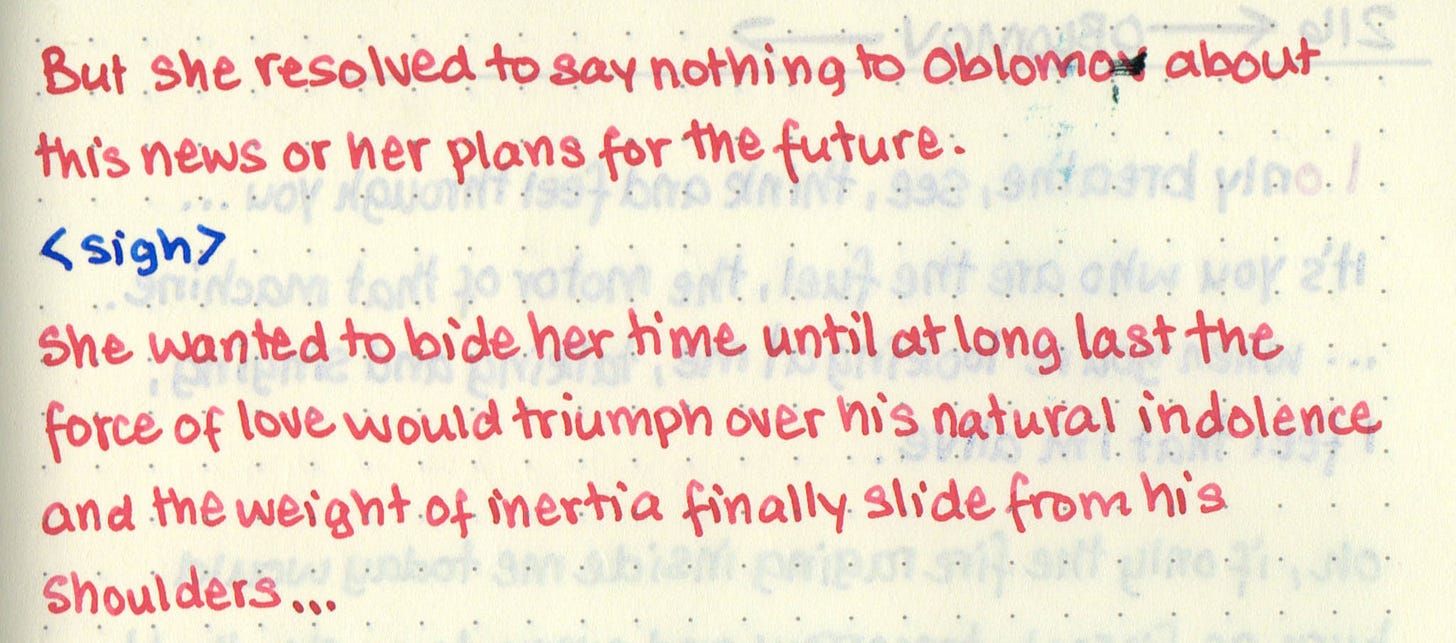 But she resolved to say nothing to Oblomov about
this news or her plans for the future.
<sigh>
She wanted to bide her time until at long last the
force of love would triumph over his natural indolence
and the weight of inertia finally slide from his
shoulders...